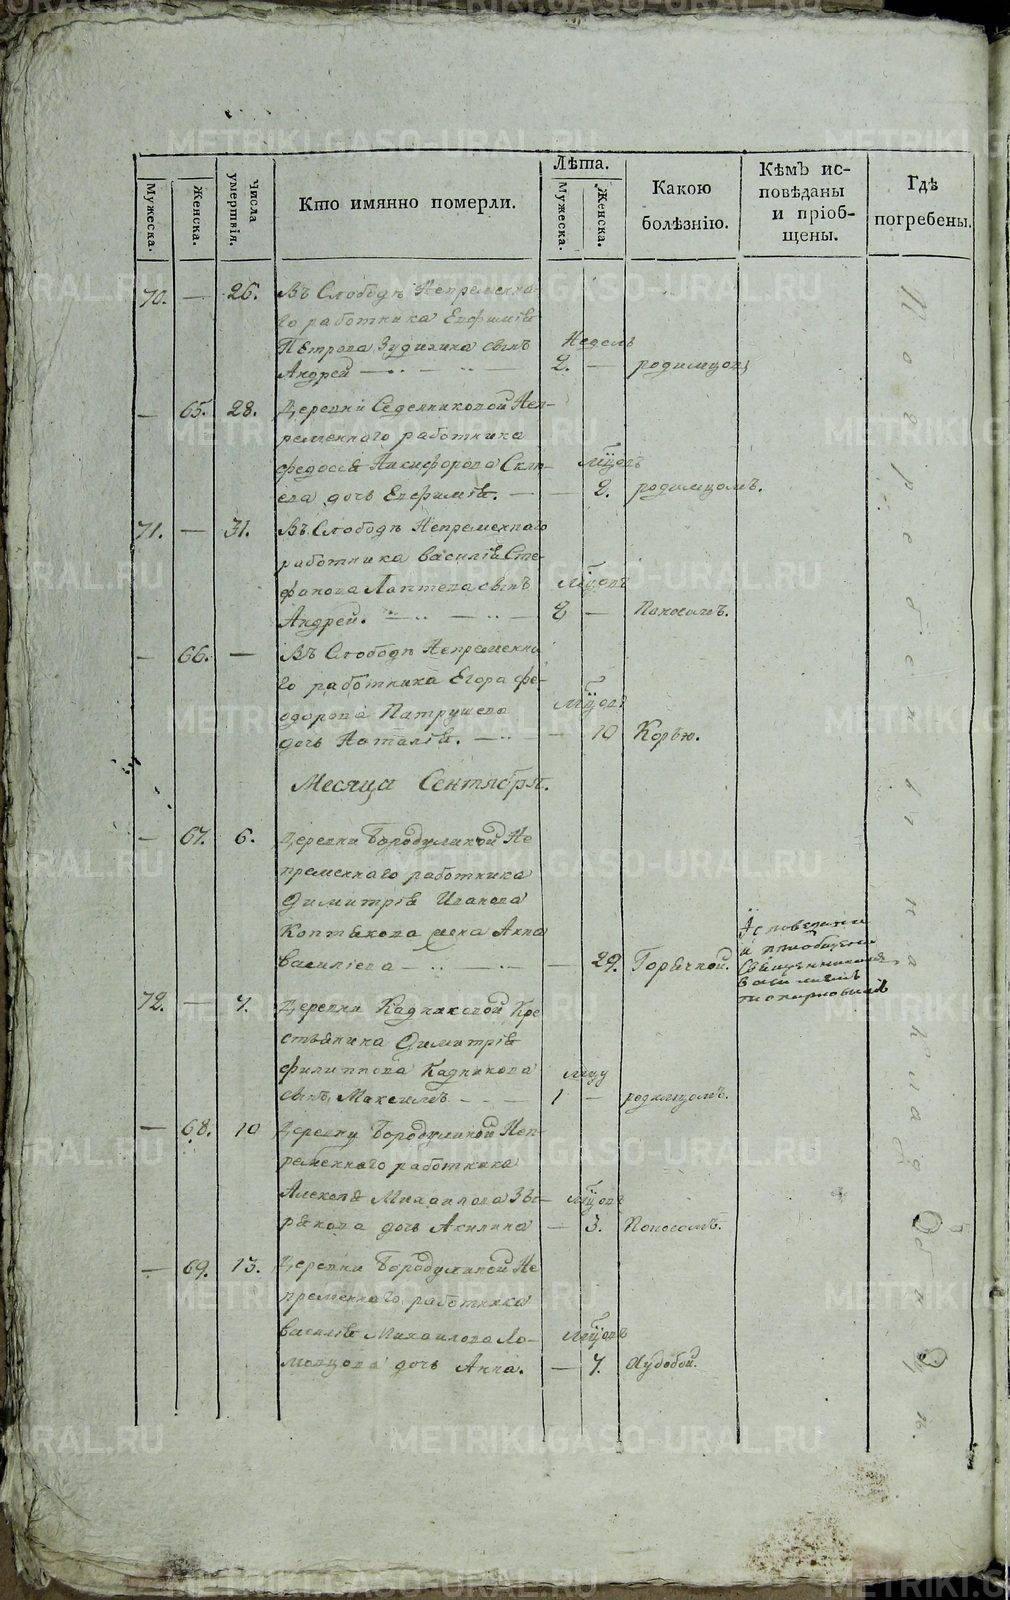 Мужеска.
Женска.
Числа умертвія.
Кто имянно померли.
Лѣта.
Мужеска.
Женска.
Какою
болѣзнію.
Кѣмъ ис-
повѣданы
и пріоб-
щены.
Гдѣ
погребены.
70. — 26. Въ Слободѣ Непременна-
го работника Евфиміѣ
Петрова сынъ Недель
Андрей — 2. — родимцомъ
— 65. 28. Деревни Седелниковой Неп-
ременнаго работника
Федосѣѣ Никифорова
дочь Евфиміѣ. — — 2. родимцомъ.
71. — 31. Въ Слободѣ Непременнаго
работника Василіѣ Сте-
фанова Лаптева сынъ
Андрей. — 2 — Поносомъ.
— 66. — Въ Слободѣ Непременна
го работника Егора Фе-
одорова Патрушева
дочь Наталіѣ. — — 10 Корью.
Месяца Сентября.
— 67. 6. Деревни Бородулиной Не
пременнаго работника
Димитріѣ Иванова
Коптѣкова жена Анна
Василіева — — 29. Горѣчкой.
Исповедана
и приобщена
Священникомъ
72. — 7. Деревни Кадниковой Кре
стьянина Димитріѣ
Филиппова Кадникова
сынъ Максимъ — 1 — родимцомъ.
— 68. 10 Деревни Бородулиной Неп-
ременнаго работника
Алексѣѣ Михаилова Зы-
рѣнова дочь Акилина — 3. Поносомъ.
— 69. 13. Деревни Бородулиной Не
пременнаго работника
Василіѣ Михаилова Ло-
мовцова дочь Анна. — 7. Худобой.
METRIKI.GASO-URAL.RU